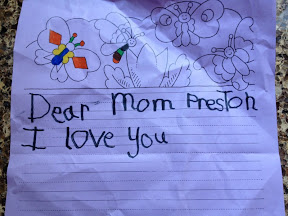 Dear Mom Preston
I love You